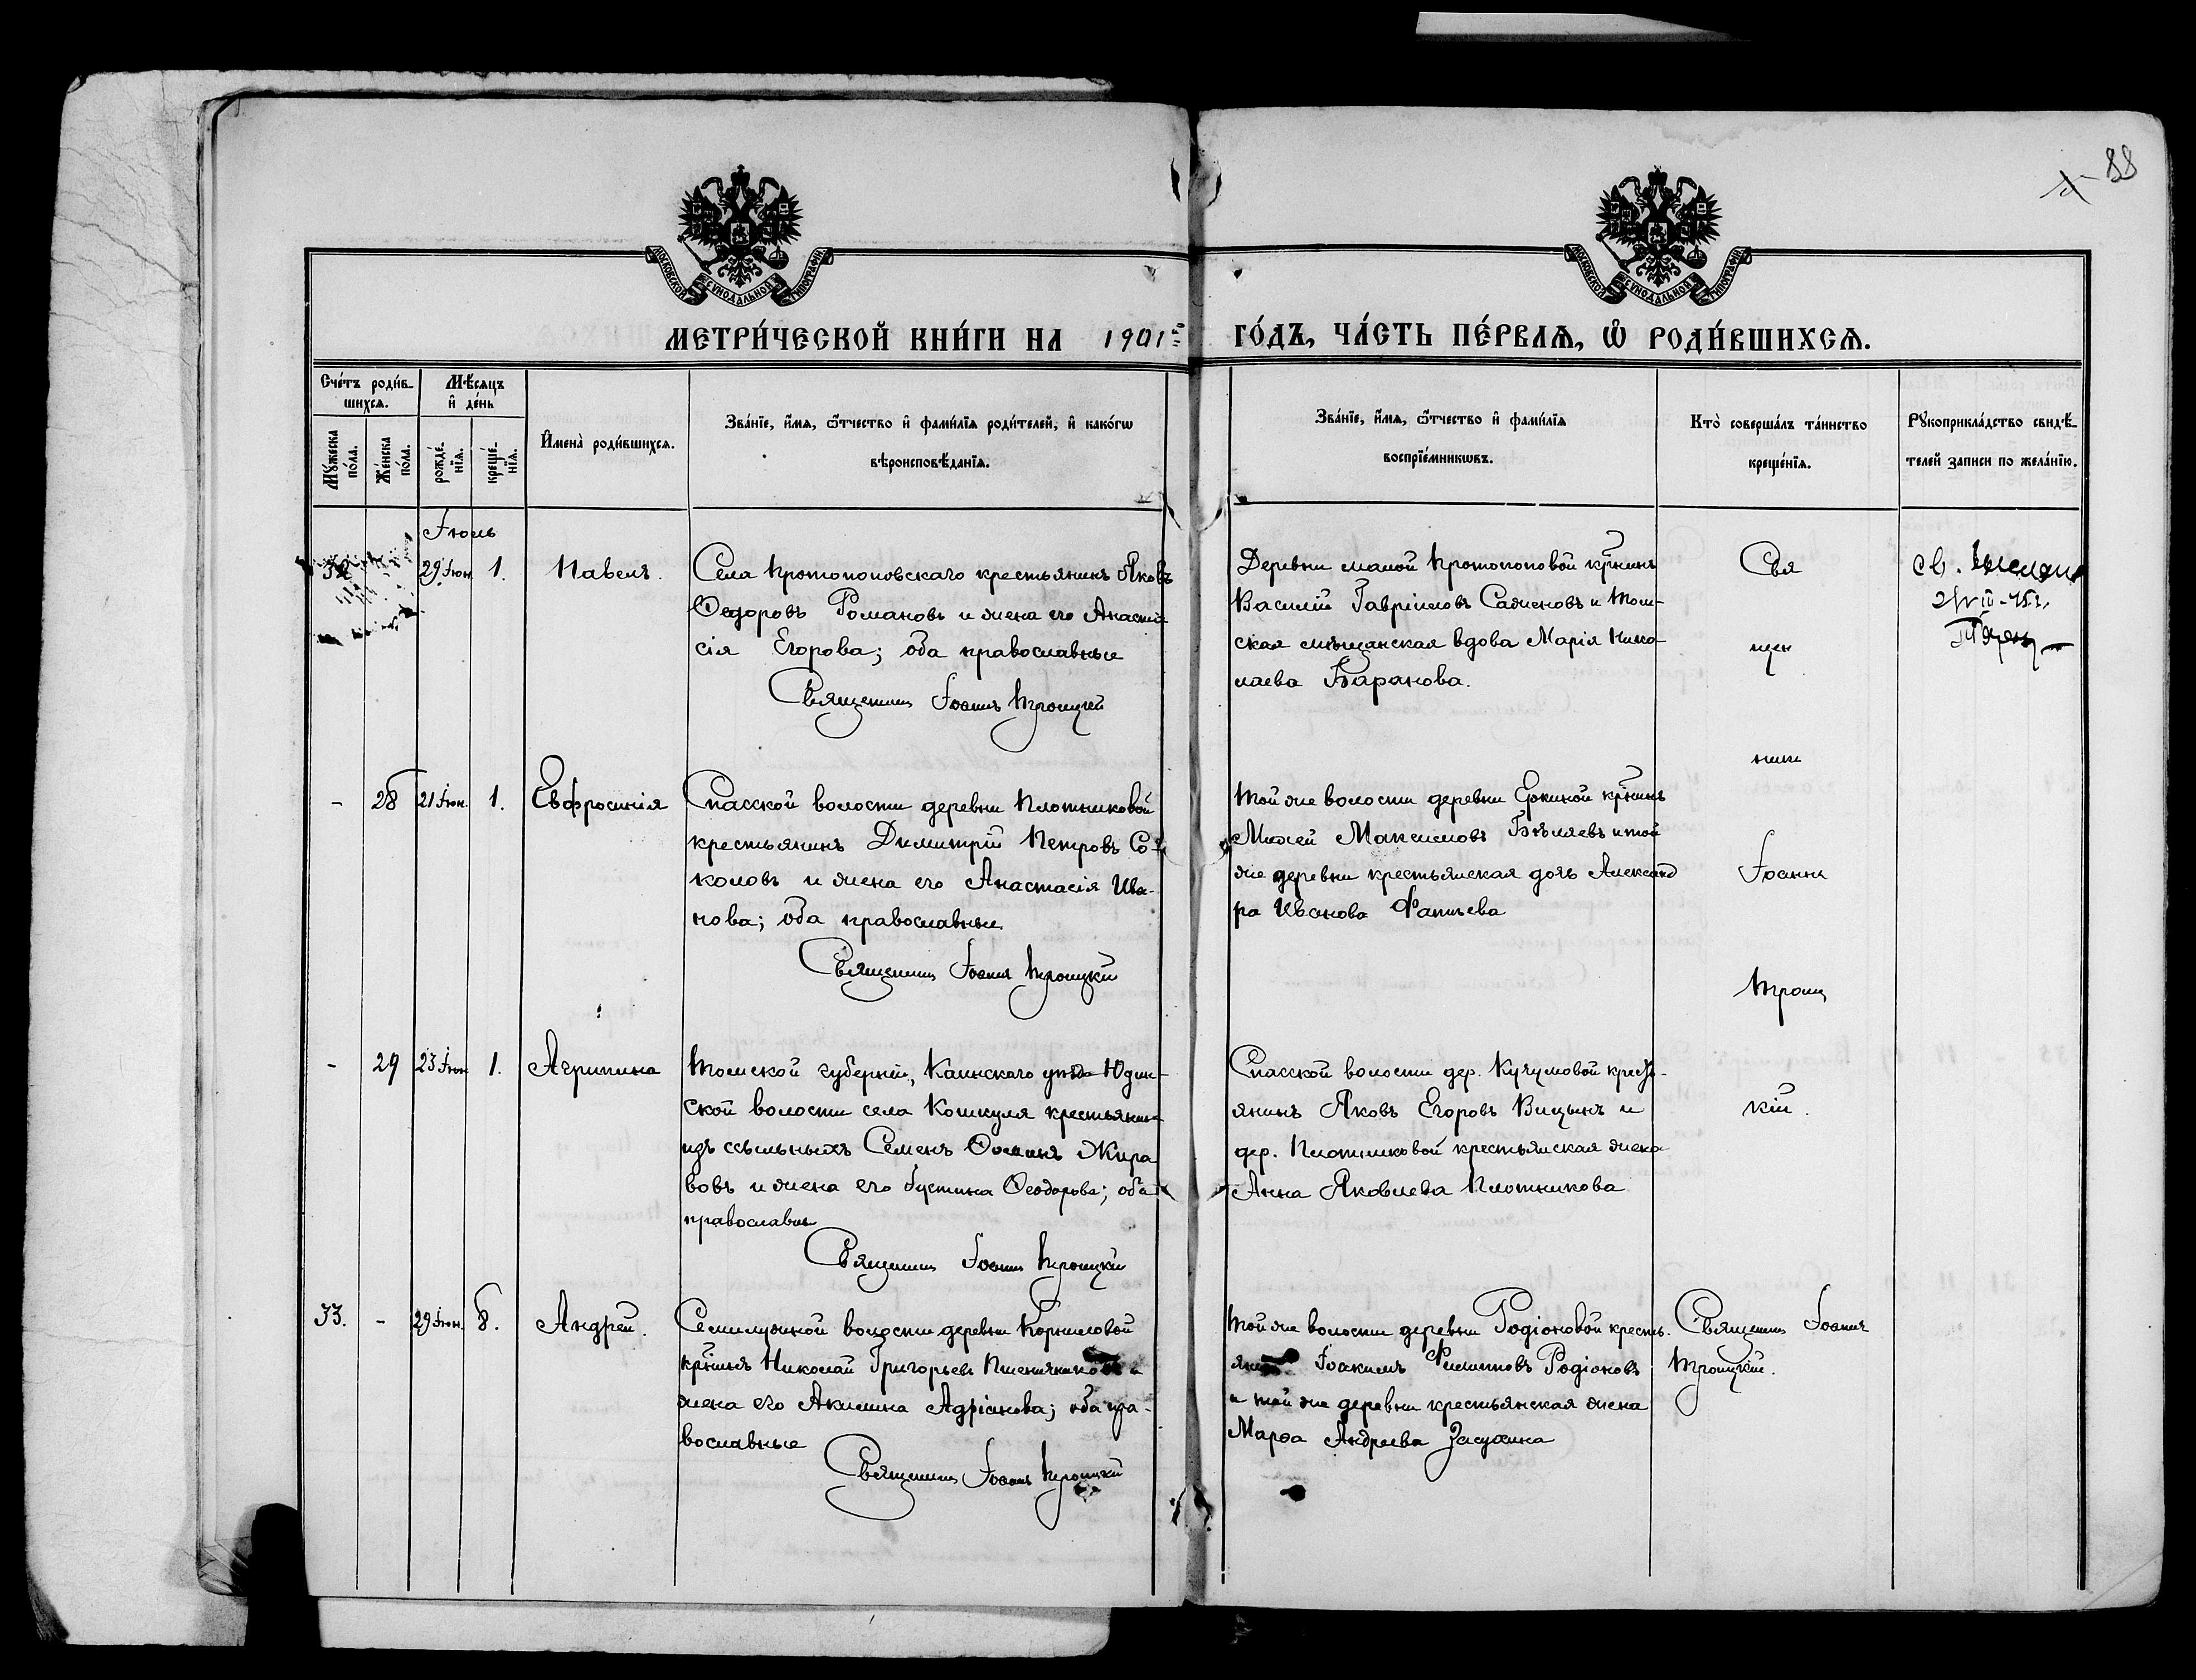 88
МОСКОВСКОЙ СѴНОДАЛЬНОЙ ТИПОГРАФІИ
МОСКОВСКОЙ СѴНОДАЛЬНОЙ ТИПОГРАФІИ
МЕТРИ́ЧЕСКОЙ КНИ́ГИ НА 1901 ГО́ДЪ, ЧА́СТЬ ПЕ́РВАѦ, Ѡ҆ РОДИ́ВШИХСѦ.
Сче́тъ роди́в-
шихсѧ.
Мꙋ́жеска
по́ла.
Же́нска
по́ла.
Мѣ́сѧцъ
и҆ де́нь
рожде́-
нїѧ.
креще́-
нїѧ.
И҆мена̀ роди́вшихсѧ.
Зва́нїе, и҆́мѧ, ѻ҆́тчество и҆ фами́лїѧ роди́телей, и҆ како́гѡ
вѣроисповѣ́данїѧ.
Зва́нїе, и҆́мѧ, ѻ҆́тчество и҆ фами́лїѧ
воспрїе́мникѡвъ.
Кто̀ соверша́лъ та́инство
креще́нїѧ.
Рꙋкоприкла́дство свидѣ́-
телей записи по жела́нїю.
Іюль
32 29 Іюн. 1. Павелъ.
Села Протопоповскаго крестьянинъ Яковъ
Ѳедоровъ Романовъ и жена его Анаста
сія Егорова; оба православные
Священникъ Іоаннъ Троицкій
Деревни малой Протопоповой кр̃нинъ
Василій Гавріиловъ Саженовъ и Том-
ская мѣщанская вдова Марія Нико-
лаева Баранова.
Свя
щен
никъ
Іоаннъ
Троиц
кій.
- 28 21 Іюн. 1. Евфросинія
Спасской волости деревни Плотниковой
крестьянинъ Димитрій Петровъ Со-
коловъ и жена его Анастасія Ива-
нова; оба православные
Священникъ Іоаннъ Троицкій
Той же волости деревни Еркиной кр̃нинъ
Моисей Максимовъ Бѣляевъ и той
же деревни крестьянская дочь Александ
ра Иванова Фатѣева
- 29 23 Іюн 1. Агрипина
Томской губерніи, Каинскаго уѣзда Юдин-
ской волости села Кошкуля крестьянинъ
изъ ссыльныхъ Семенъ Ѳоминъ Жира
вовъ и жена его Іустина Ѳеодорова; оба
православны
Священникъ Іоаннъ Троицкій
Спасской волости дер. Кучумовой кресть-
янинъ Яковъ Егоровъ Вицынъ и
дер. Плотниковой крестьянская жена
Анна Яковлева Плотникова
33. - 29 Іюн. 8. Андрей.
Семилужной волости деревни Корниловой
кр̃нинъ Николай Григорьевъ Пшеничниковъ и
жена его Акилина Адріанова; оба пра-
вославные
Священникъ Іоаннъ Троицкій
Той же волости деревни Родіоновой кресть-
янинъ Іоакимъ Филиповъ Родіоновъ
и той же деревни крестьянская жена
Марѳа Андреева Засухина
Священникъ Іоаннъ
Троицкій.